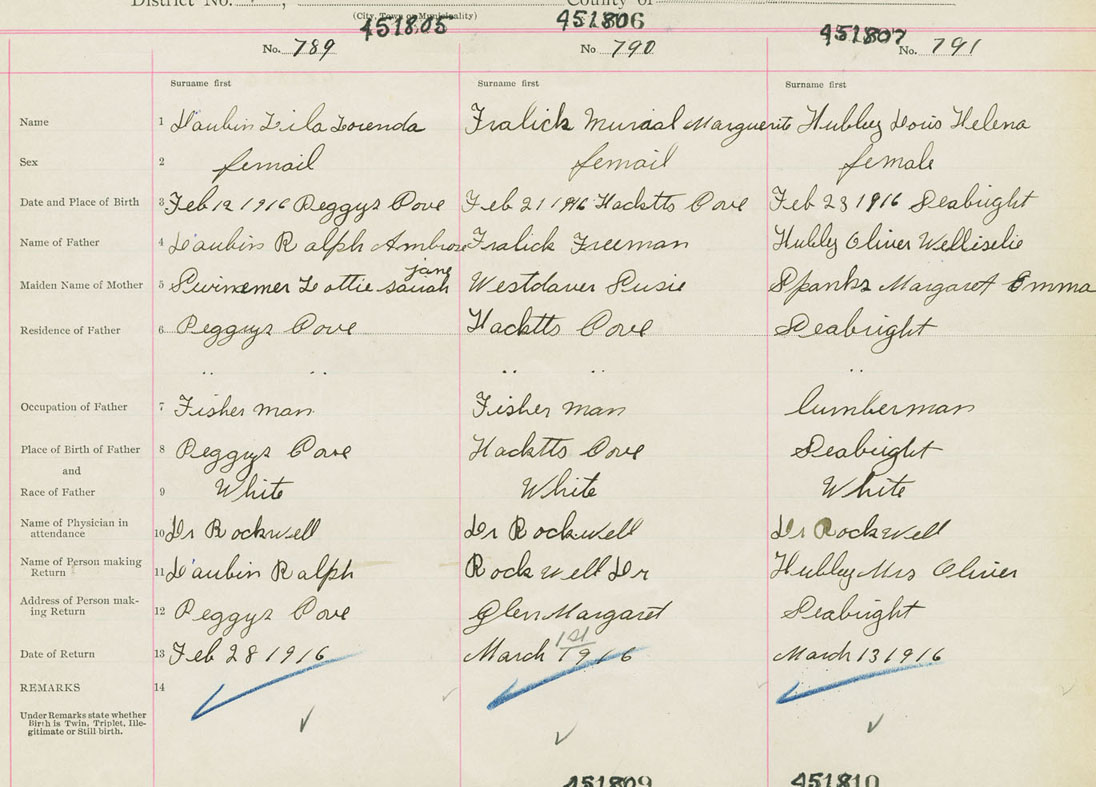 District No. , County of
(City, Town or Municipality)
451805 451806 451807
No. 789 No. 790 No. 791
Surname first Surname first Surname first
Name 1 D'aubin Lila Lorenda Fralick Muraal Marguerite Hubley Doris Helena
Sex 2 femail femail female
Date and Place of Birth 3 Feb 12 1916 Peggys Cove Feb 21 1916 Hacktts Cove Feb 23 1916 Seabright
Name of Father 4 D'aubin Ralph Ambrose Fralick Freeman Hubly Oliver Welliselie
jane
Maiden Name of Mother 5 Swinemer Lottie sarah Westdaver Susie Spanks Margaret Emma
Residence of Father 6 Peggys Cove Hacktts Cove Seabright
Occupation of Father 7 Fisher man Fisher man lumberman
Place of Birth of Father 8 Peggys Cove Hacktts Cove Seabright
and
Race of Father 9 White White White
Name of Physician in
attendance 10 Dr Rockwell Dr Rockwell Dr Rockwell
Name of Person making
Return 11 D'aubin Ralph Rockwell Dr Hubley Mrs Oliver
Address of Person mak-
ing Return 12 Peggys Cove Glen Margaret Seabright
Date of Return 13 Feb 28 1916 March 1st 1916 March 13 1916
REMARKS 14
Under Remarks state whether
Birth is Twin, Triplet, Ille-
gitimate or Still birth.
451809 451810